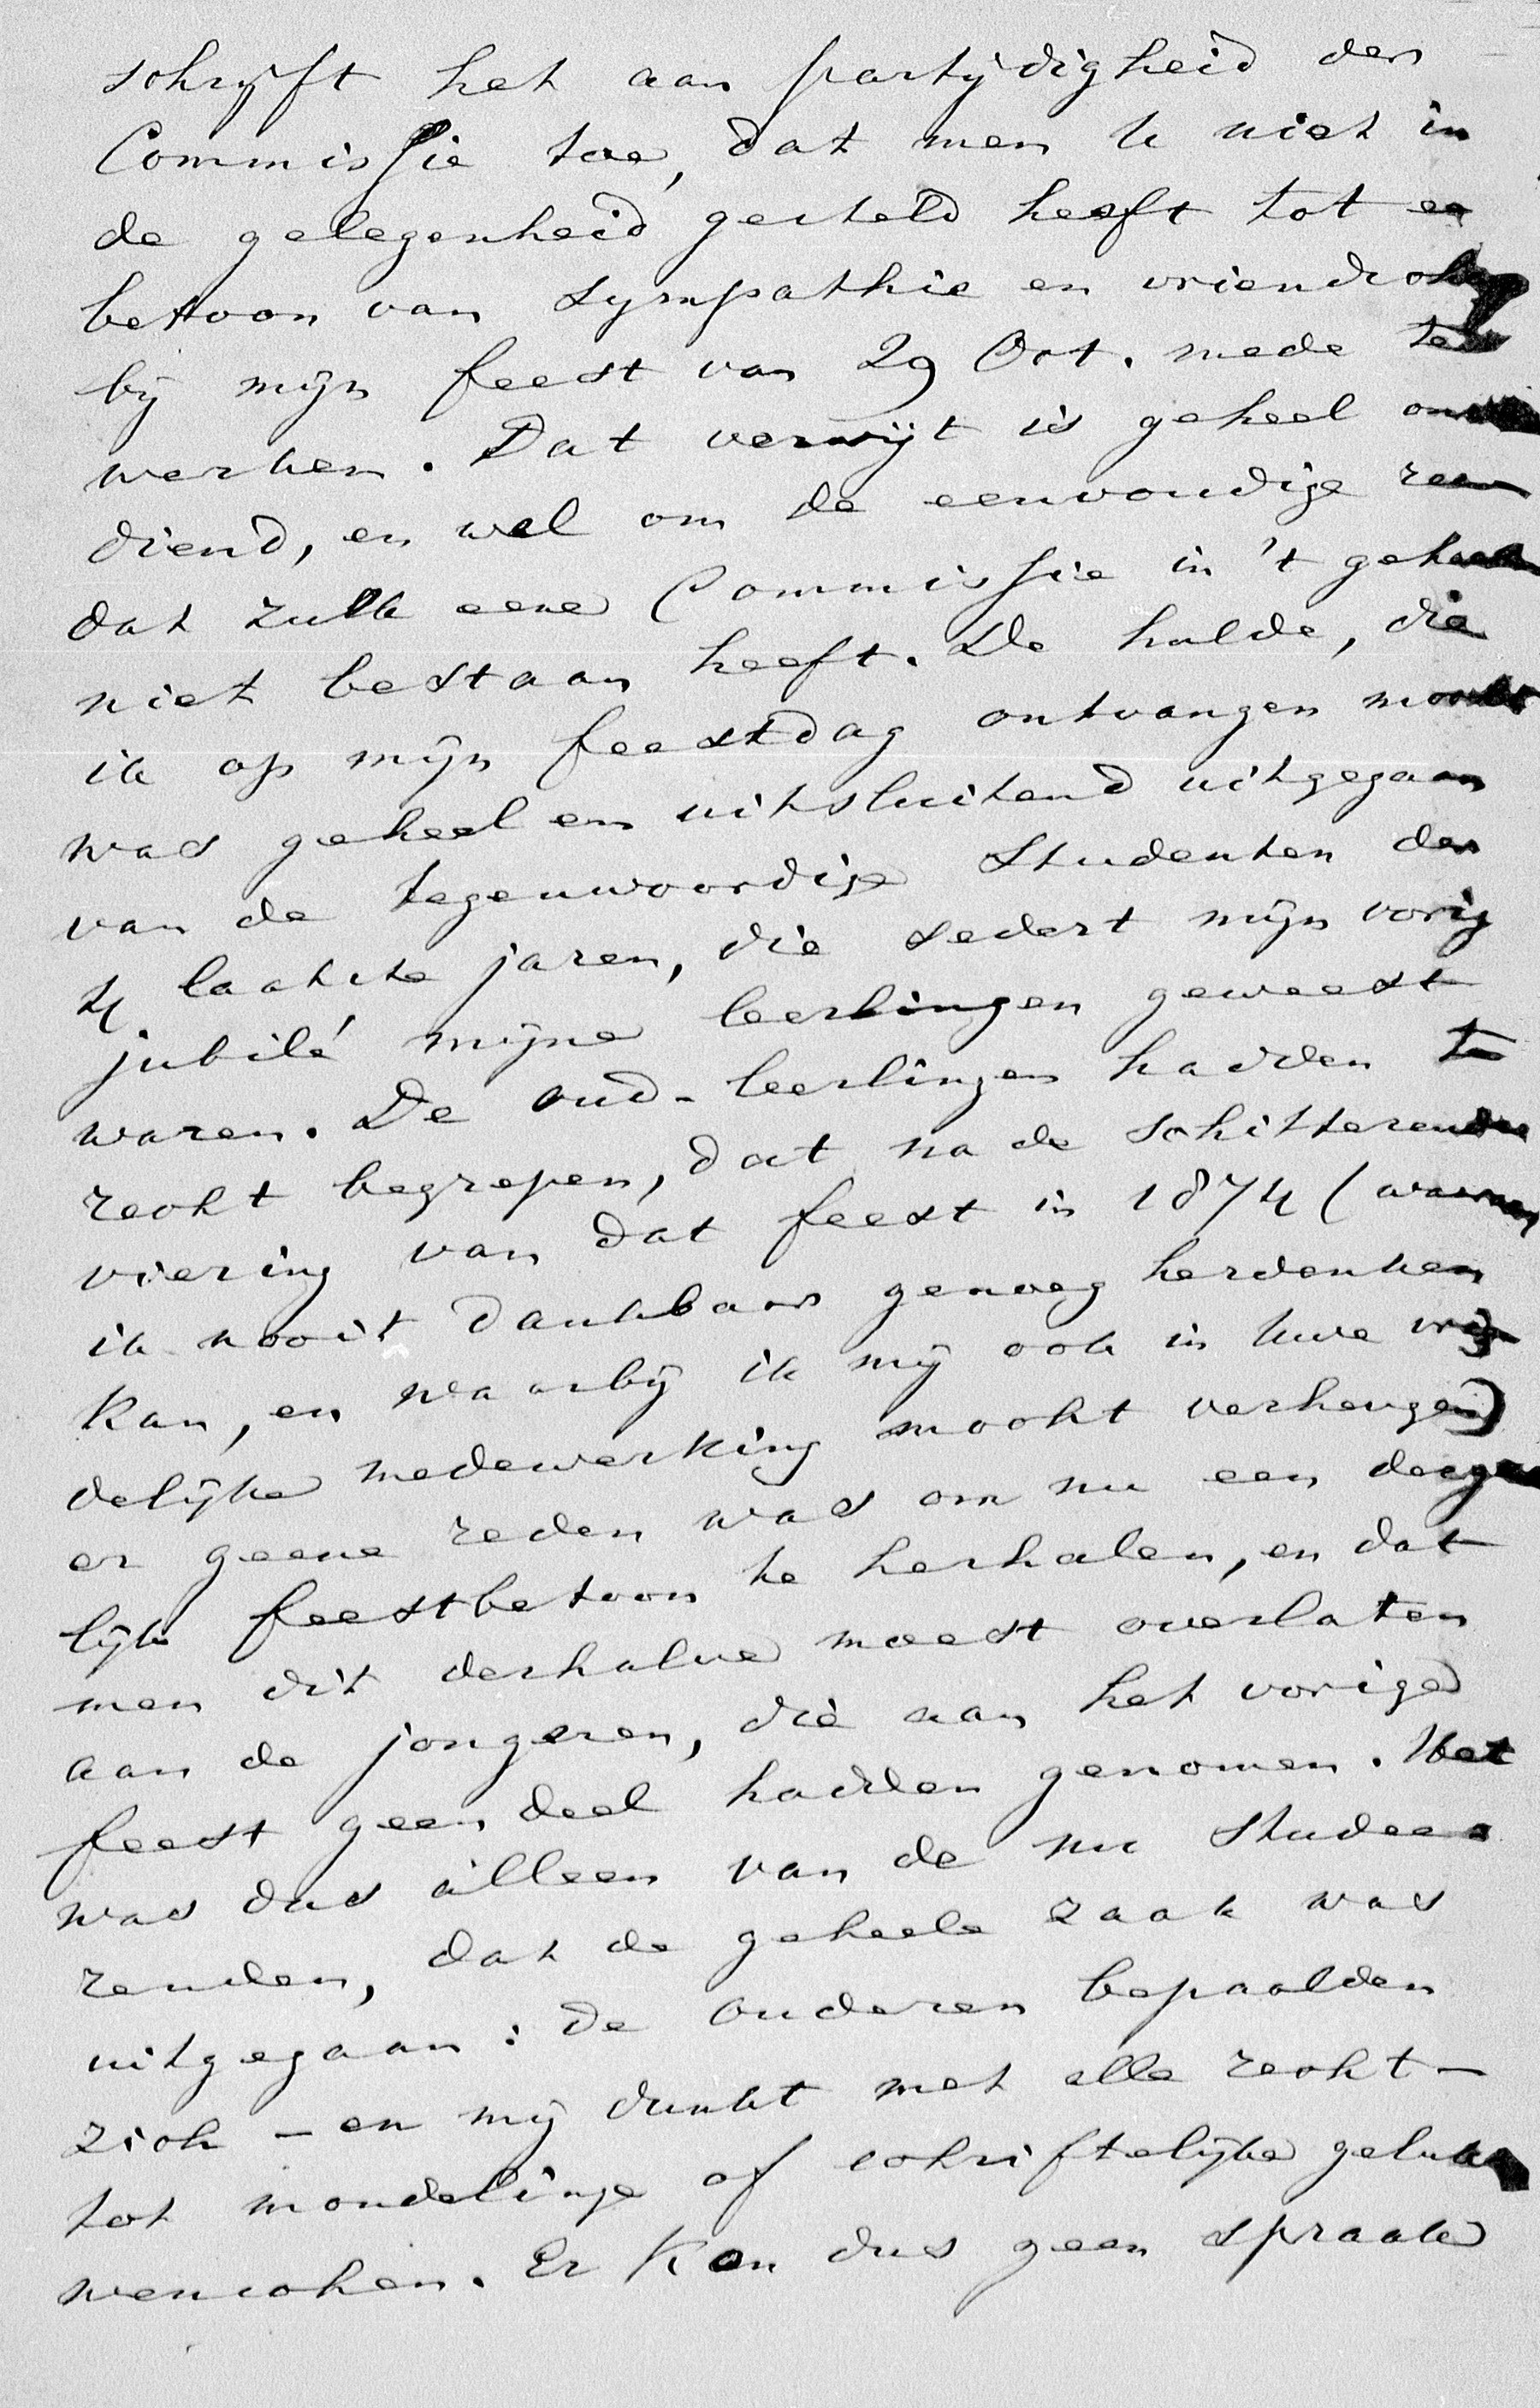 schrijft het aan partijdigheid der
Commissie toe, dat men U niet in
de gelegenheid gesteld heeft tot een
betoon van sympathie en vriendsch
bij mijn feest van 29 Oct. mede te
werken. Dat verwijt is geheel on
diend, en wel om de eenvoudige reden
dat zulk eene Commissie in 't geheel
niet bestaan heeft. De hulde, die
ik op mijn feestdag ontvangen mocht
was geheel en uitsluitend uitgegaan
van de tegenwoordige Studenten der
4 laatste jaren, die sedert mijn vorig
jubilé mijne leerlingen geweest
waren. De oud-leerlingen hadden te
recht begrepen, dat na de schitterende
viering van dat feest in 1874 (waaraan
ik nooit dankbaar genoeg herdenken
kan, en waarbij ik mij ook in Uwe vrien
delijke medewerking mocht verheugen)
er geene reden was om nu een derge
lijk feestbetoon te herhalen, en dat
men dit derhalve moest overlaten
aan de jongeren, die aan het vorige
feest geen deel hadden genomen. Het
was dus alleen van de nu Studee
renden, dat de geheele zaak was
uitgegaan: de ouderen bepaalden
zich – en mij dunkt met alle recht –
tot mondelinge of schriftelijke geluk
wenschen. Er kon dus geen spraak